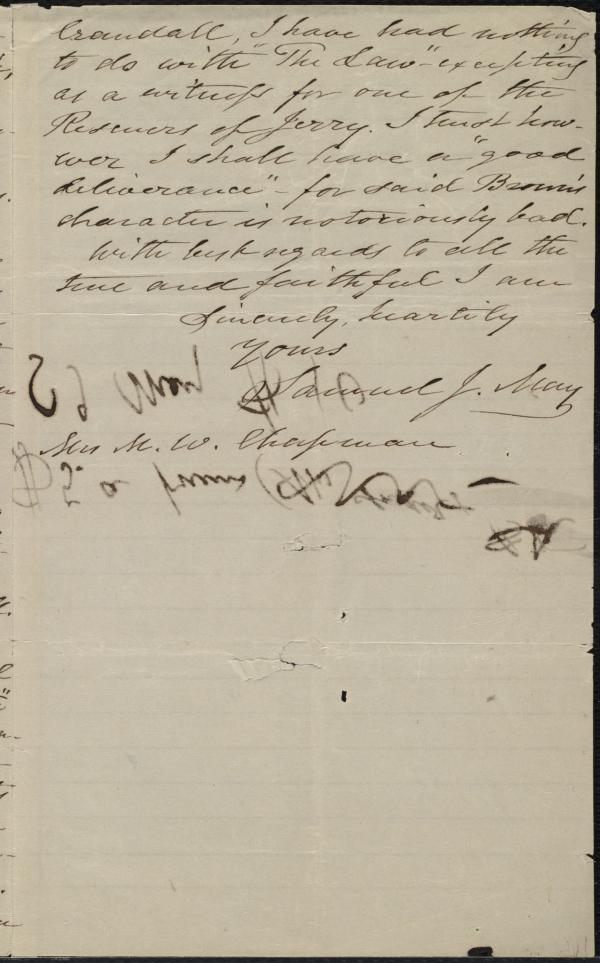 Crandall, I have had nothing
to do with "The Law" - excepting
as a witness for one of the
Rescuers of Jerry. I trust how-
ever I shall have a "good
deliverance" - for said Brown's
character is notoriously bad.
With best regards to all the
true and faithful I am
Sincerely, heartily
Yours
Samuel J. May
Mrs M. W. Chapman